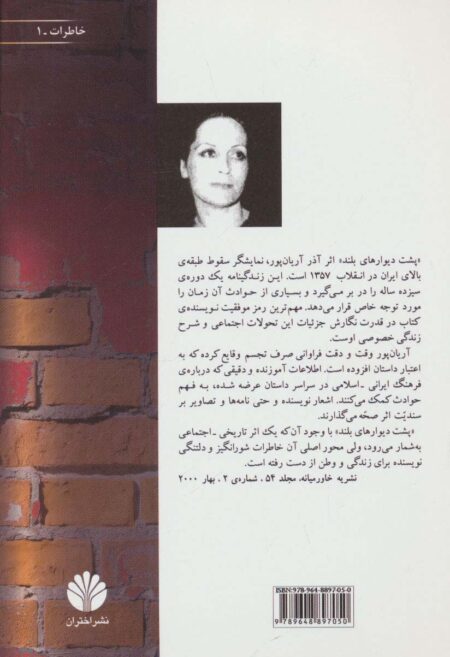 خاطرات ـ ۱
«پشت دیوارهای بلند» اثر آذر آریان‌پور، نمایشگر سقوط طبقه‌ی
بالای ایران در انقلاب ۱۳۵۷ است. این زندگینامه یک دوره‌ی
سیزده ساله را در بر می‌گیرد و بسیاری از حوادث آن زمان را
مورد توجه خاص قرار می‌دهد. مهم‌ترین رمز موفقیت نویسنده‌ی
کتاب در قدرت نگارش جزئیات این تحولات اجتماعی و شرح
زندگی خصوصی اوست.
آریان‌پور وقت و دقت فراوانی صرف تجسم وقایع کرده که به
اعتبار داستان افزوده است. اطلاعات آموزنده و دقیقی که درباره‌ی
فرهنگ ایرانی ـ اسلامی در سراسر داستان عرضه شده، به فهم
حوادث کمک می‌کنند. اشعار نویسنده و حتی نامه‌ها و تصاویر بر
سندیّت اثر صحّه می‌گذارند.
«پشت دیوارهای بلند» با وجود آن‌که یک اثر تاریخی ـ اجتماعی
به‌شمار می‌رود، ولی محور اصلی آن خاطرات شورانگیز و دلتنگی
نویسنده برای زندگی و وطن از دست رفته است.
نشریه خاورمیانه، مجلد ۵۴، شماره‌ی ۲، بهار ۲۰۰۰
ISBN: 978-964-8897-05-0
9789648897050
نشر اختران